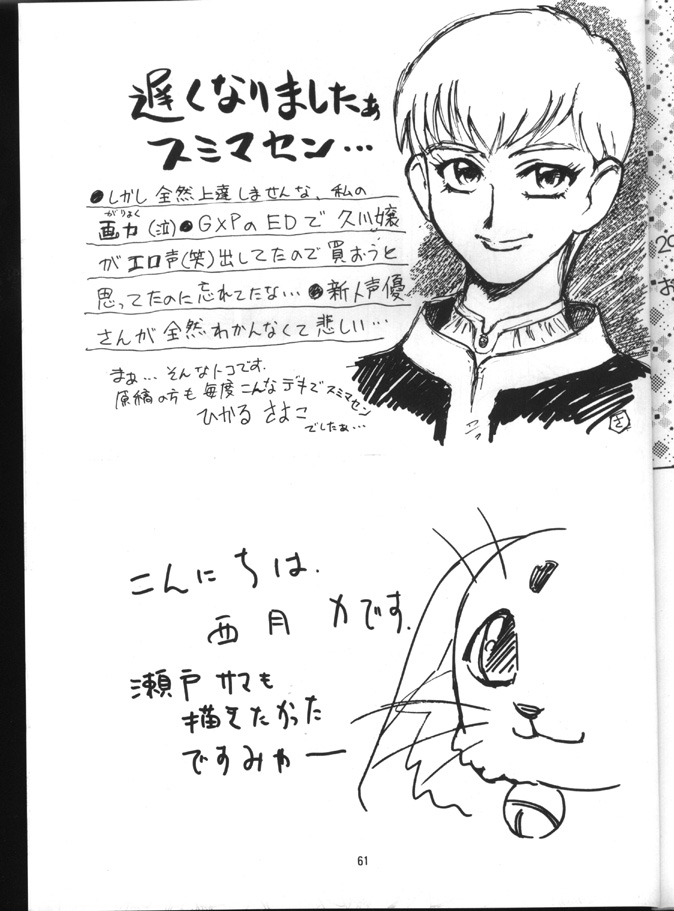 遅くなりましたぁ
スミマセン…
●しかし全然上達しませんな、私の
画力(泣)●GXPのEDで久川嬢
がりょく
がエロ声(笑)出してたので買おうと
思ってたのに忘れてたな…●新人声優
さんが全然わかんなくて悲しい…
まぁ…そんなトコです.
原稿の方も毎度こんなデキでスミマセン
ひかる さよこ
でしたぁ…
さ
こんにちは.
西月 力です.
瀬戸サマも
描きたかった
ですみゃー
61
29
お